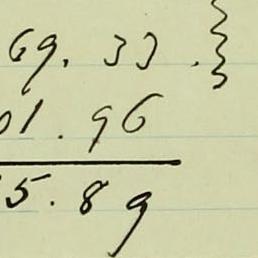 69. 33.
01. 96
5. 89